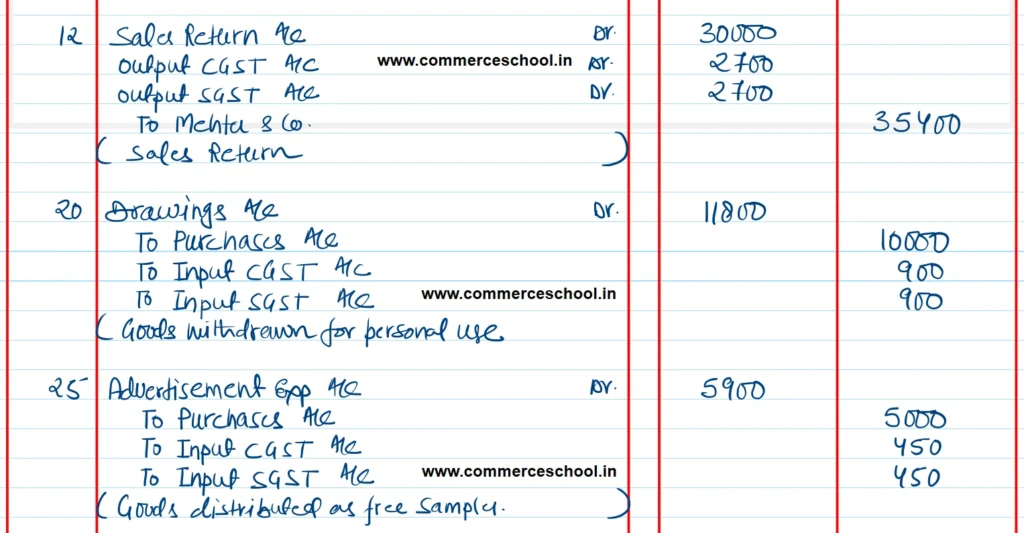 12 Sales Return A/c Dr. 30000
Output CGST A/C www.commerceschool.in Dr. 2700
Output SGST A/c Dr. 2700
To Mehta & Co. 35400
( Sales Return )
20 Drawings A/c Dr. 11800
To Purchases A/c 10000
To Input CGST A/C 900
To Input SGST A/c www.commerceschool.in 900
( Goods withdrawn for personal use
25 Advertisement Exp A/c Dr. 5900
To Purchases A/c 5000
To Input CGST A/c 450
To Input SGST A/c www.commerceschool.in 450
( Goods distributed as free sample. )